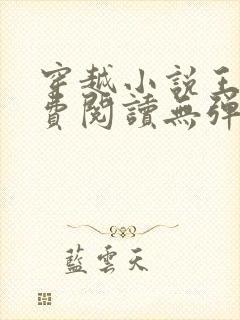 穿越小說王
費閱讀無彈
藍雲天